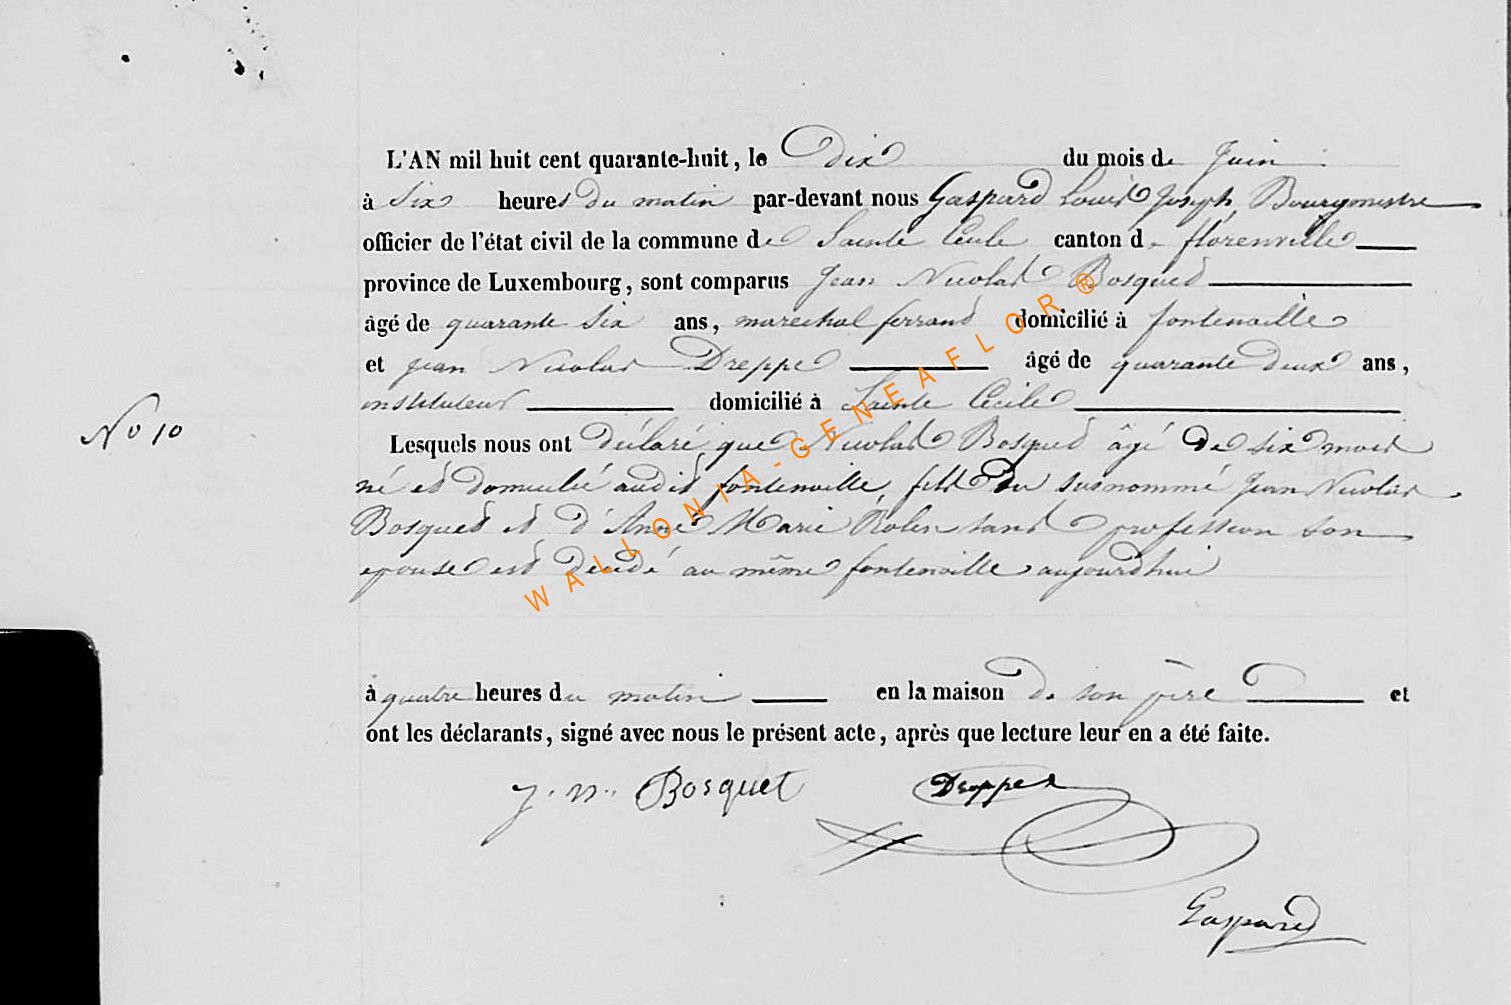 L'AN mil huit cent quarante-huit, le Dix du mois de Juin
à Six heures du matin par-devant nous Gaspard Louis Joseph, Bourgmestre
officier de l'état civil de la commune de Sainte Cécile canton de florenville
province de Luxembourg, sont comparus Jean Nicolas Bosquet
âgé de quarante Six ans, marechal ferrand domicilié à fontenoille
et jean Nicolas Dreppe âgé de quarante deux ans,
instituteur domicilié à Sainte Cécile
N° 10
Lesquels nous ont déclaré que Nicolas Bosquet âgé de six mois
né et domicilié audit fontenoille, fils du susnommé Jean Nicolas
Bosquet et d'Anne Marie Rolin sans profession son
epouse est decédé au même fontenoille aujourdhui
à quatre heures du matin en la maison de son père et
ont les déclarants, signé avec nous le présent acte, après que lecture leur en a été faite.
J. N. Bosquet Dreppe
Gaspard
WALLONIA-GENEAFLOR®